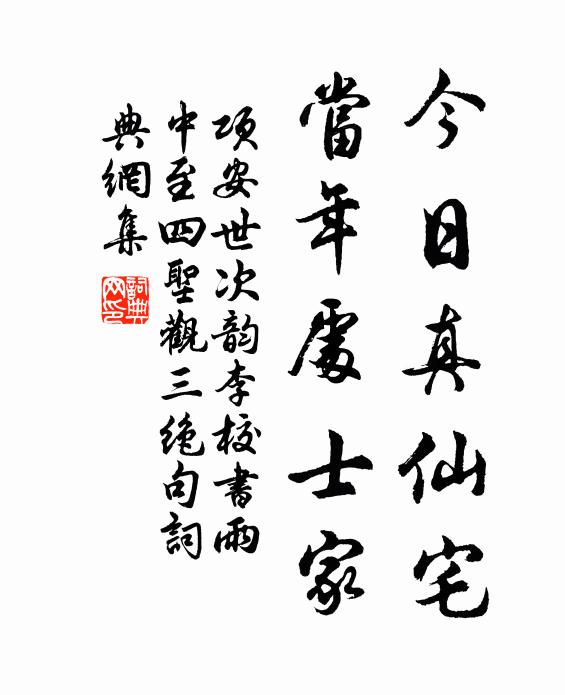 今日真仙宅
當年處士家
項安世次韵李校書雨
中至四聖觀三絶句詞
典網集
詞典網印